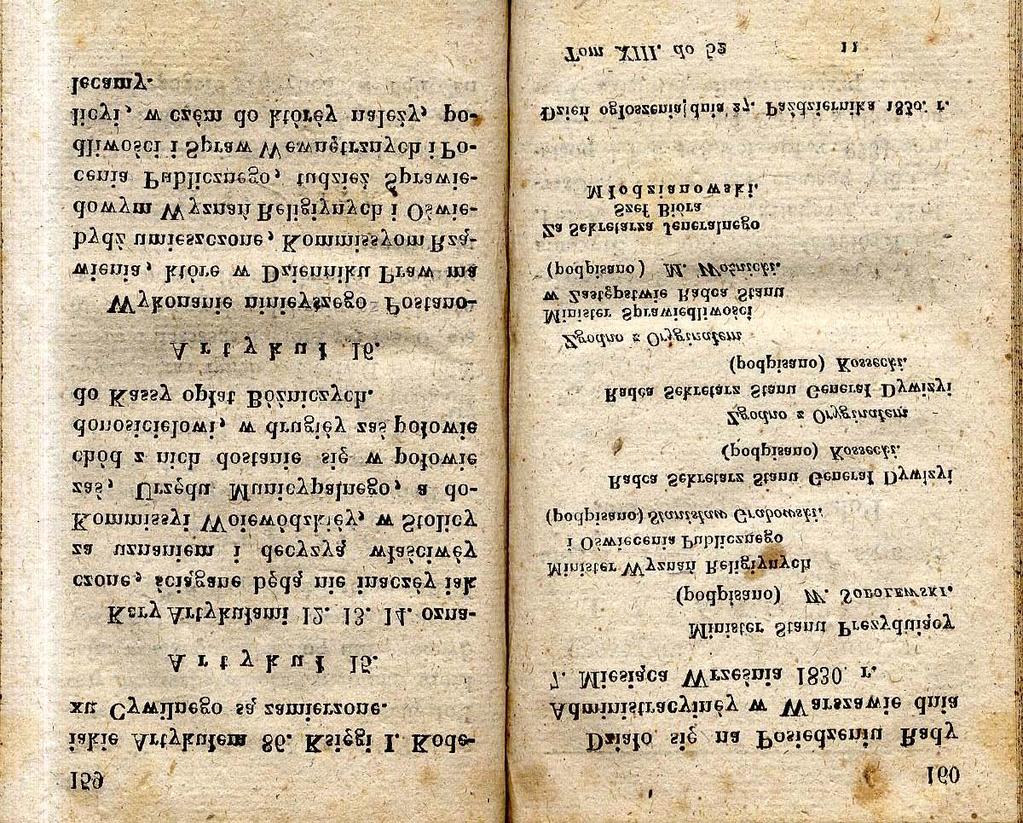 159
iakie Artykułem 86. Księgi I. Kode-
xu Cywilnego są zamierzone.
Artykuł 15.
Kary Artykułami 12. 13. 14. ozna-
czone, ściągane będą nie inaczéy iak
za uznaniem i decyzyą właściwéy
Kommissyi Woiewódzkiéy, w Stolicy
zaś, Urzędu Municypalnego, a do-
chód z nich dostanie się w połowie
donosicielowi, w drugiéy zaś połowie
do Kassy opłat Bóżniczych.
Artykuł 16.
Wykonanie ninieyszego Postano-
wienia, które w Dzienniku Praw ma
bydź umieszczone, Kommissyom Rzą-
dowym Wyznań Religiynych i Oświe-
cenia Publicznego, tudzież Sprawie-
dliwości i Spraw Wewnętrznych i Po-
licyi, w czém do któréy należy, po-
lecamy.
160
Działo się na Posiedzeniu Rady
Administracyinéy w Warszawie dnia
7. Miesiąca Września 1830. r.
Minister Stanu Prezyduiący
(podpisano) W. SOBOLEWSKI.
Minister Wyznań Religiynych
i Oświecenia Publicznego
(podpisano) Stanisław Grabowski.
Radca Sekretarz Stanu Generał Dywizyi
(podpisano) Kossecki.
Zgodno z Oryginałem
Radca Sekretarz Stanu Generał Dywizyi
(podpisano) Kossecki.
Zgodno z Oryginałem
Minister Sprawiedliwości
w Zastępstwie Radca Stanu
(podpisano) M. Woźnicki.
Za Sekretarza Jeneralnego
Szef Bióra
Młodzianowski.
Dzień ogłoszenia dnia 27. Października 1830. r.
Tom XIII. do 52 11